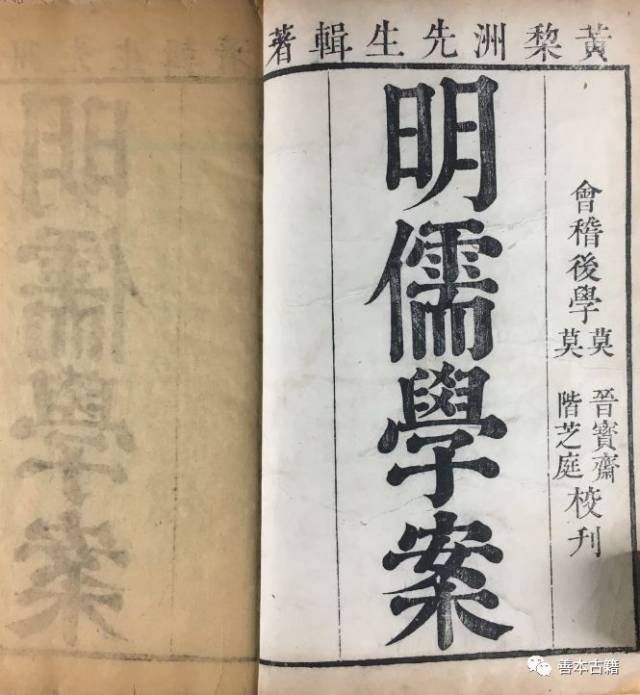 黃棃洲先生輯著
會稽後學
莫晉寶齋
莫階芝庭
校刊
明儒學案
善本古籍